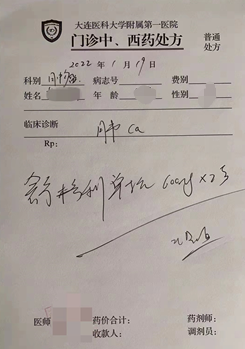 大连医科大学附属第一医院
门诊中、西药处方
普通
处方
2022年1月19日
科别 病志号 费别
姓名 年龄 性别
临床诊断 Ca
Rp:
舒格利单抗 600mg x 2支
医师 药价合计: 药剂师:
收款人: 调剂员: